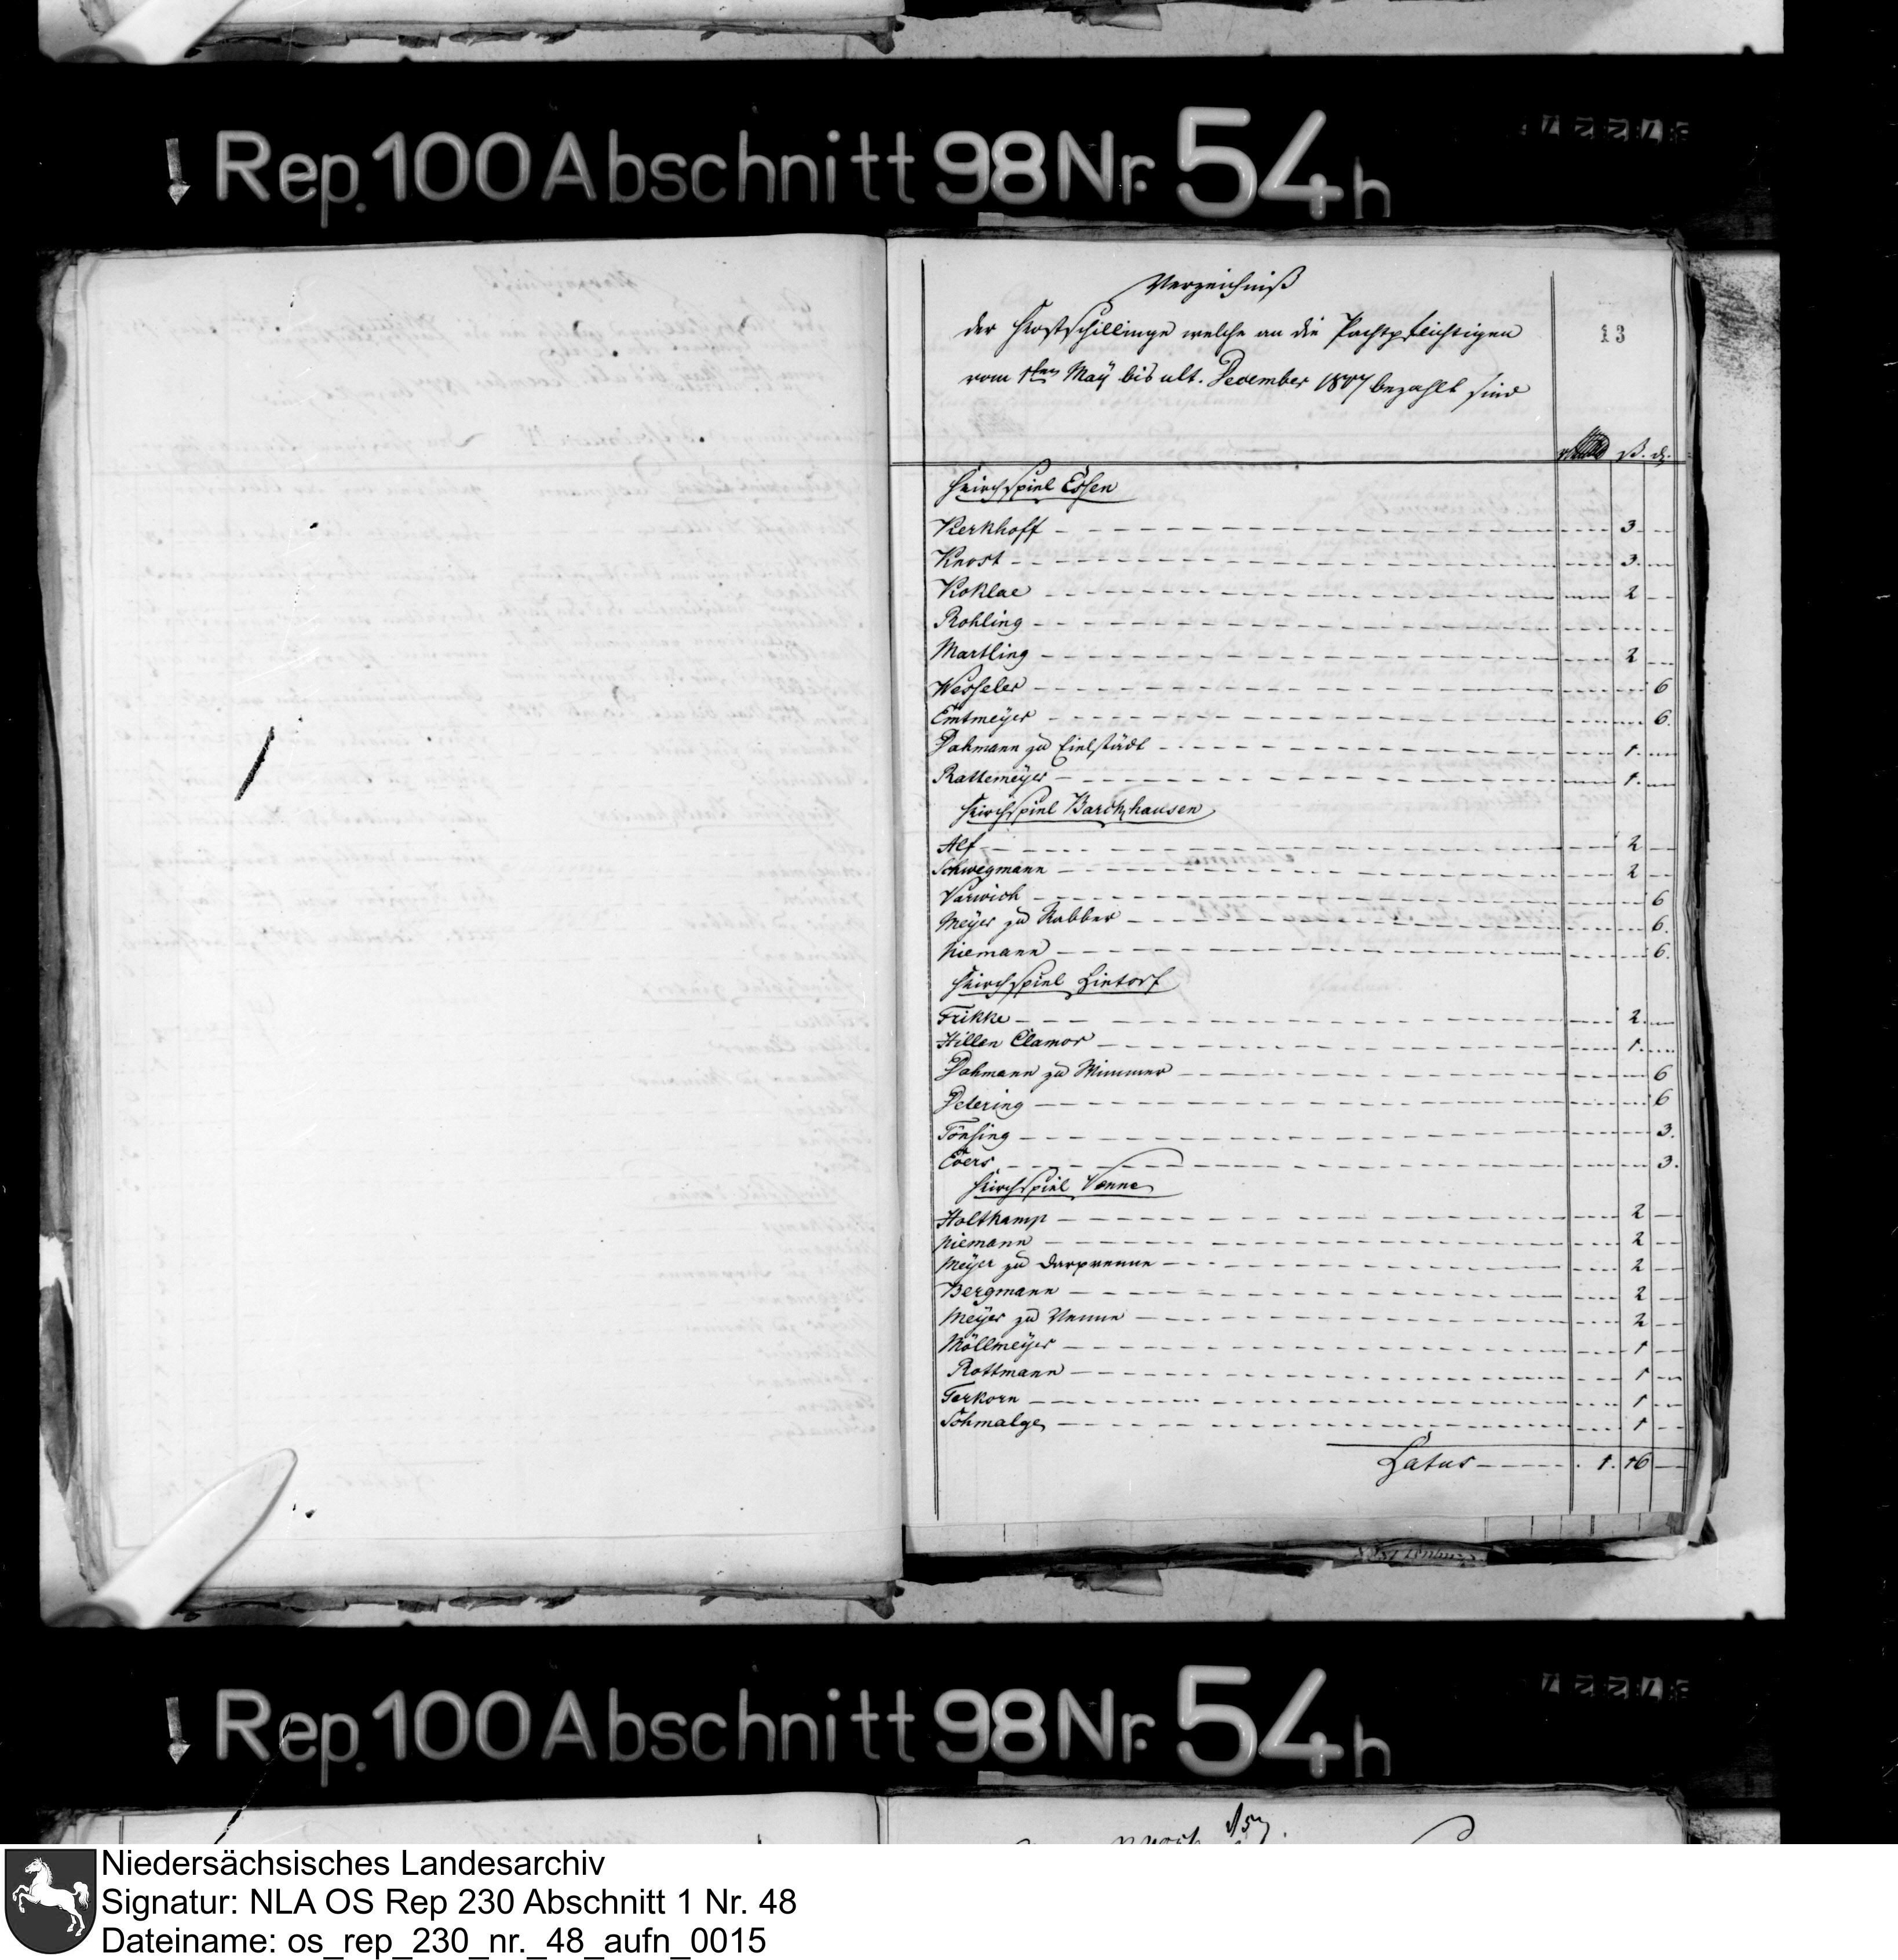 Rep. 100 Abschnitt 98 Nr. 54h
Verzeichniß
der Kostschillinge welche an die Pachtpflichtigen
13
vom 1ten Maÿ bis ult. December 1807 bezahlt sind
ß. d.
Kirchspiel Essen
Kerkhoff 3
Knost 3
Koklae 2
Rohling
Martling 2
Wesseler 6
Emtmeÿer 6
Dahmann zu Eielstädt 1
Rattemeÿer 1
Kirchspiel Barckhausen
Alf 2
Schwegmann 2
Varwich 6
Meÿer zu Rabber 6
Niemann 6
Kirchspiel Lintorf
Frikke 2
Hillen Clamor 1
Dahmann zu Wimmer 6
Detering 6
Tönsing 3
Evers 3
Kirchspiel Venne
Holtkamp 2
Niemann 2
Meÿer zu Darpvenne 2
Bergmann 2
Meÿer zu Venne 2
Möllmeÿer 1
Rottmann 1
Terkorn 1
Schmalge 1
Latus 1. 16
Rep. 100 Abschnitt 98 Nr. 54h
Niedersächsisches Landesarchiv
Signatur: NLA OS Rep 230 Abschnitt 1 Nr. 48
Dateiname: os_rep_230_nr._48_aufn_0015